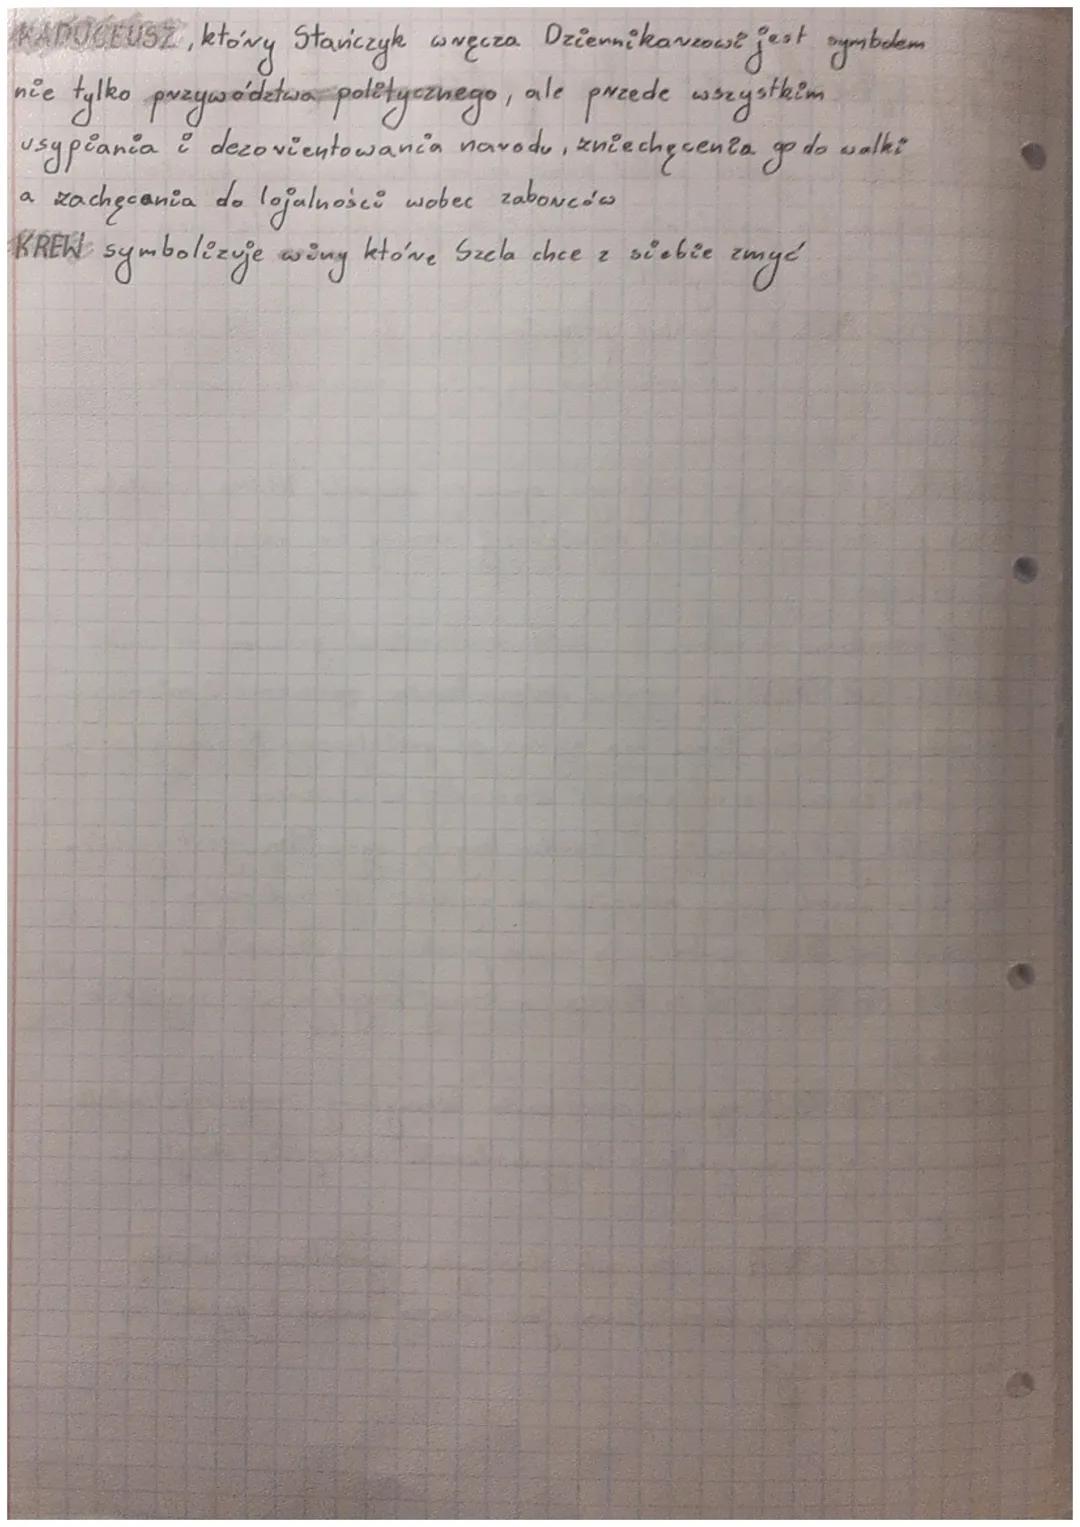 KADUCEUSZ, który Stańczyk wręcza Dziennikarzowi jest symbolem
nie tylko przywództwa politycznego, ale przede wszystkim
usypiania i dezorientowania narodu, zniechęcenia go do walki
a zachęcania do lojalności wobec zaborców
KREW symbolizuje winy które Szela chce z siebie zmyć